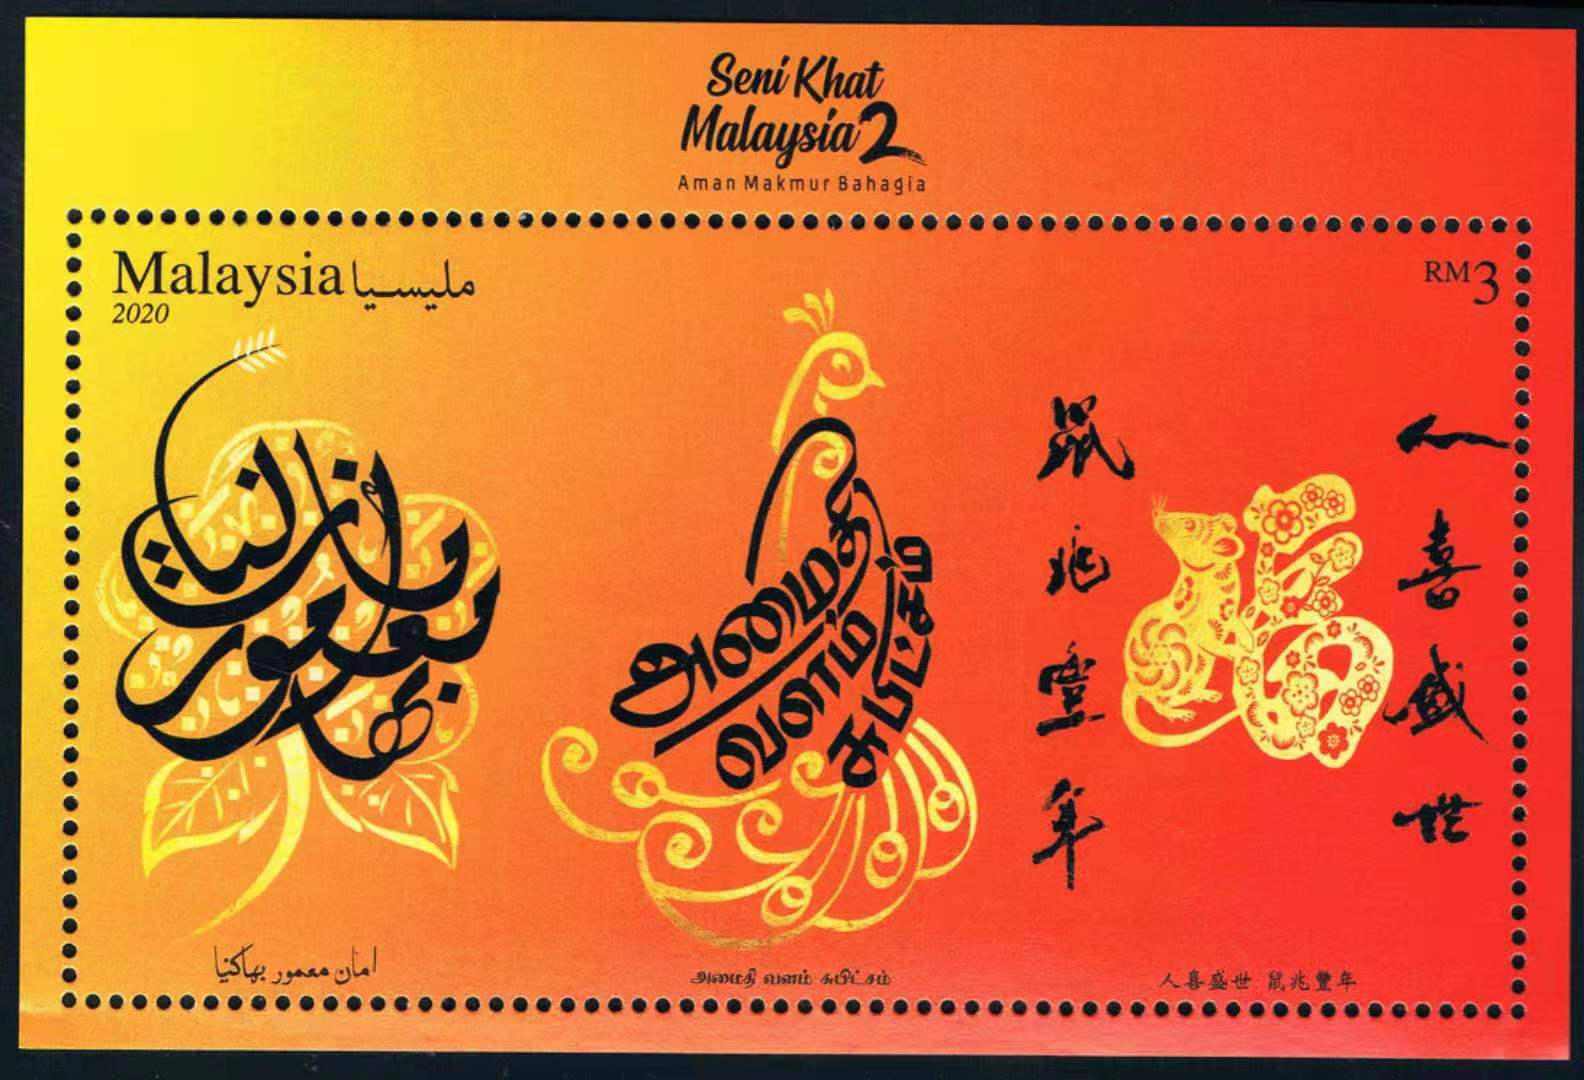 Seni Khat
Malaysia 2
Aman Makmur Bahagia
Malaysia مليسيا
RM3
2020
امان معمور بهاݢيا
அமைதி
வளம்
சுபிட்சம்
鼠兆豐年
人喜盛世
امان معمور بهاکنيا
அமைதி வளம் சுபிட்சம்
人喜盛世 鼠兆豐年